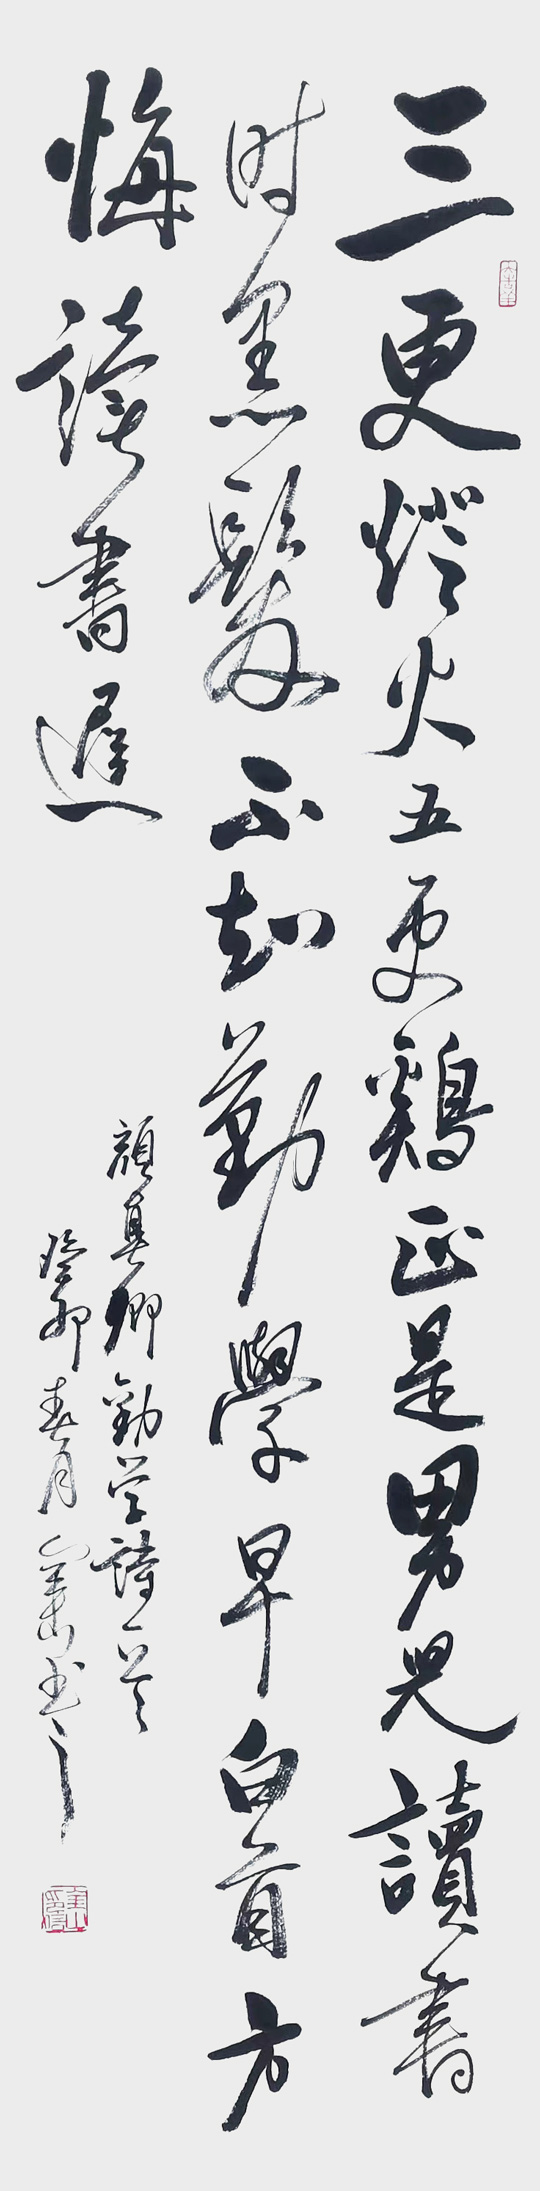 三更燈火五更鷄正是男兒讀書
时黑髮不知勤學早白首方
悔讀書遲
顔真卿勸学詩一首
癸卯春月 书